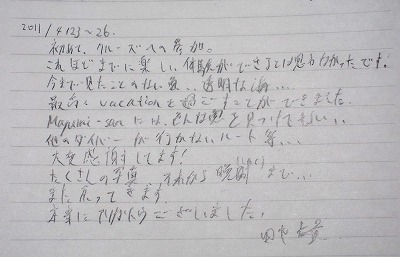 2011/4/23~26.
初めて、クルーズへの参加。
これほどまでに楽しい体験ができるとは思わなかったです!
今まで見たことのない魚、、透明な海、、、
最高な vacation を過ごすことができました。
Mayumi-san には、そんな魚を見つけてもらい、、
他のダイバーが行かないルート等、、、
大変感謝してます!
たくさんの写真、それから晩酌(しゃく)まで、、、
また戻ってきます。
本当にありがとうございました。